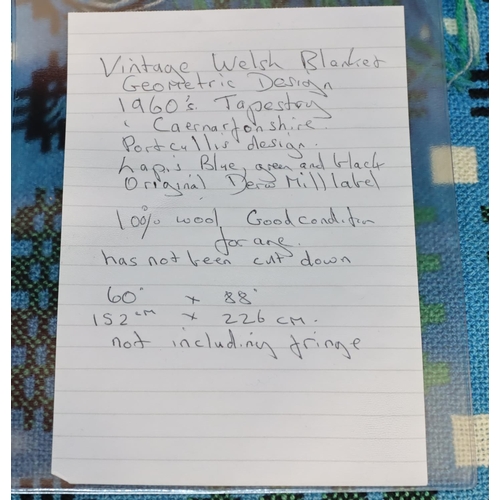 Vintage Welsh Blanket
Geometric Design
1960's Tapestry
' Caernarfonshire.
Portcullis design.
Lapis Blue, green and black
Original Derw Mill label
100% wool Good condition
for age.
has not been cut down
60" x 88"
152cm x 226 cm.
not including fringe